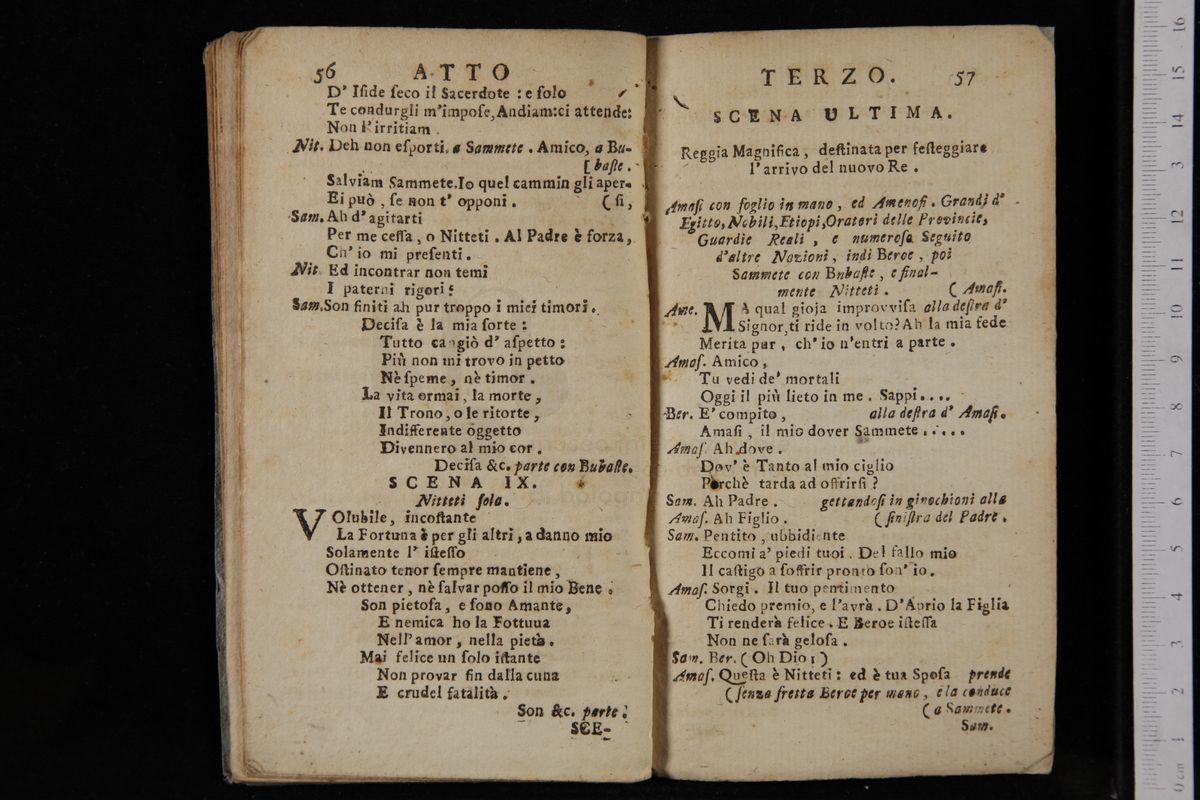 56 ATTO
D' Iſide ſeco il Sacerdote : e ſolo
Te condurgli m'impoſe, Andiam: ci attende:
Non l'irritiam .
Nit. Deh non eſporti. a Sammete . Amico, a Bu-
[ baſte .
Salviam Sammete. Io quel cammin gli aper-
Ei può , ſe non t' opponi . ( ſi,
Sam. Ah d' agitarti
Per me ceſſa , o Nitteti . Al Padre è forza,
Ch' io mi preſenti .
Nit. Ed incontrar non temi
I paterni rigori ?
Sam. Son finiti ah pur troppo i miei timori.
Deciſa è la mia ſorte :
Tutto cangiò d' aſpetto :
Più non mi trovo in petto
Nè ſpeme , nè timor .
La vita ormai , la morte ,
Il Trono, o le ritorte ,
Indifferente oggetto
Divennero al mio cor .
Deciſa &c. parte con Bubaſte.
SCENA IX.
Nitteti ſola.
VOlubile, incoſtante
La Fortuna è per gli altri, a danno mio
Solamente l' iſteſſo
Oſtinato tenor ſempre mantiene ,
Nè ottener , nè ſalvar poſſo il mio Bene .
Son pietoſa, e ſono Amante,
E nemica ho la Fottuua
Nell' amor , nella pietà .
Mai felice un ſolo iſtante
Non provar fin dalla cuna
E crudel fatalità .
Son &c. parte .
SCE-
TERZO. 57
SCENA ULTIMA.
Reggia Magnifica , deſtinata per feſteggiare
l'arrivo del nuovo Re .
Amaſi con foglio in mano , ed Amenofi . Grandi d'
Egitto, Nobili, Etiopi, Oratori delle Provincie,
Guardie Reali , e numeroſo Seguito
d'altre Nazioni , indi Beroe , poi
Sammete con Bubaſte , e final-
mente Nitteti . ( Amaſi.
Ame. MA qual gioja improvviſa alla deſtra d'
Signor, ti ride in volto? Ah la mia fede
Merita pur , ch' io n'entri a parte .
Amaſ. Amico ,
Tu vedi de' mortali
Oggi il più lieto in me . Sappi....
Ber. E' compito , alla deſtra d' Amaſi.
Amaſi , il mio dover Sammete .....
Amaſ. Ah dove .
Dov' è Tanto al mio ciglio
Perchè tarda ad offrirſi ?
Sam. Ah Padre . gettandoſi in ginochioni alla
Amaſ. Ah Figlio . ( ſiniſtra del Padre .
Sam. Pentito , ubbidiente
Eccomi a' piedi tuoi . Del fallo mio
Il caſtigo a ſoffrir pronto ſon' io.
Amaſ. Sorgi . Il tuo pentimento
Chiedo premio, e l'avrà . D'Aprio la Figlia
Ti renderà felice . E Beroe iſteſſa
Non ne ſarà geloſa .
Sam. Ber. ( Oh Dio ; )
Amaſ. Queſta è Nitteti : ed è tua Spoſa prende
( ſenza fretta Beroe per mano , e la conduce
( a Sammete .
Sam.